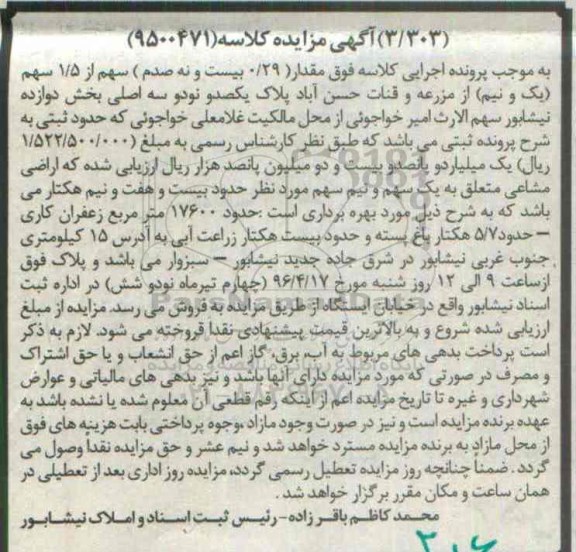 (۳/۳۰۳) آگهی مزایده کلاسه (۹۵۰۰۴۷۱)
به موجب پرونده اجرایی کلاسه فوق مقدار( ۰/۲۹ بیست و نه صدم ) سهم از ۱/۵ سهم
(یک و نیم) از مزرعه و قنات حسن آباد پلاک یکصدو نودو سه اصلی بخش دوازده
نیشابور سهم الارث امیر خواجوئی از محل مالکیت غلامعلی خواجوئی که حدود ثبتی به
شرح پرونده ثبتی می باشد که طبق نظر کارشناس رسمی به مبلغ (۱/۵۲۲/۵۰۰/۰۰۰
ریال) یک میلیاردو پانصد بیست و دو میلیون پانصد هزار ریال ارزیابی شده که اراضی
مشاعی متعلق به یک سهم و نیم سهم مورد نظر حدود بیست و هفت و نیم هکتار می
باشد که به شرح ذیل مورد بهره برداری است :حدود ۱۷۶۰۰ متر مربع زعفران کاری
– حدود۵/۷ هکتار باغ پسته و حدود بیست هکتار زراعت آبی به آدرس ۱۵ کیلومتری
جنوب غربی نیشابور در شرق جاده جدید نیشابور – سبزوار می باشد و پلاک فوق
ازساعت ۹ الی ۱۲ روز شنبه مورخ ۹۶/۴/۱۷ (چهارم تیرماه نودو شش) در اداره ثبت
اسناد نیشابور واقع در خیابان ایستگاه از طریق مزایده به فروش می رسد. مزایده از مبلغ
ارزیابی شده شروع و به بالاترین قیمت پیشنهادی نقدا فروخته می شود. لازم به ذکر
است پرداخت بدهی های مربوط به آب، برق، گاز اعم از حق انشعاب و یا حق اشتراک
و مصرف در صورتی که مورد مزایده دارای آنها باشد و نیز بدهی های مالیاتی و عوارض
شهرداری و غیره تا تاریخ مزایده اعم از اینکه رقم قطعی آن معلوم شده یا نشده باشد به
عهده برنده مزایده است و نیز در صورت وجود مازاد ،وجوه پرداختی بابت هزینه های فوق
از محل مازاد به برنده مزایده مسترد خواهد شد و نیم عشر و حق مزایده نقدا وصول می
گردد . ضمنا چنانچه روز مزایده تعطیل رسمی گردد، مزایده روز اداری بعد از تعطیلی در
همان ساعت و مکان مقرر برگزار خواهد شد .
محمد کاظم باقر زاده – رئیس ثبت اسناد و املاک نیشابور